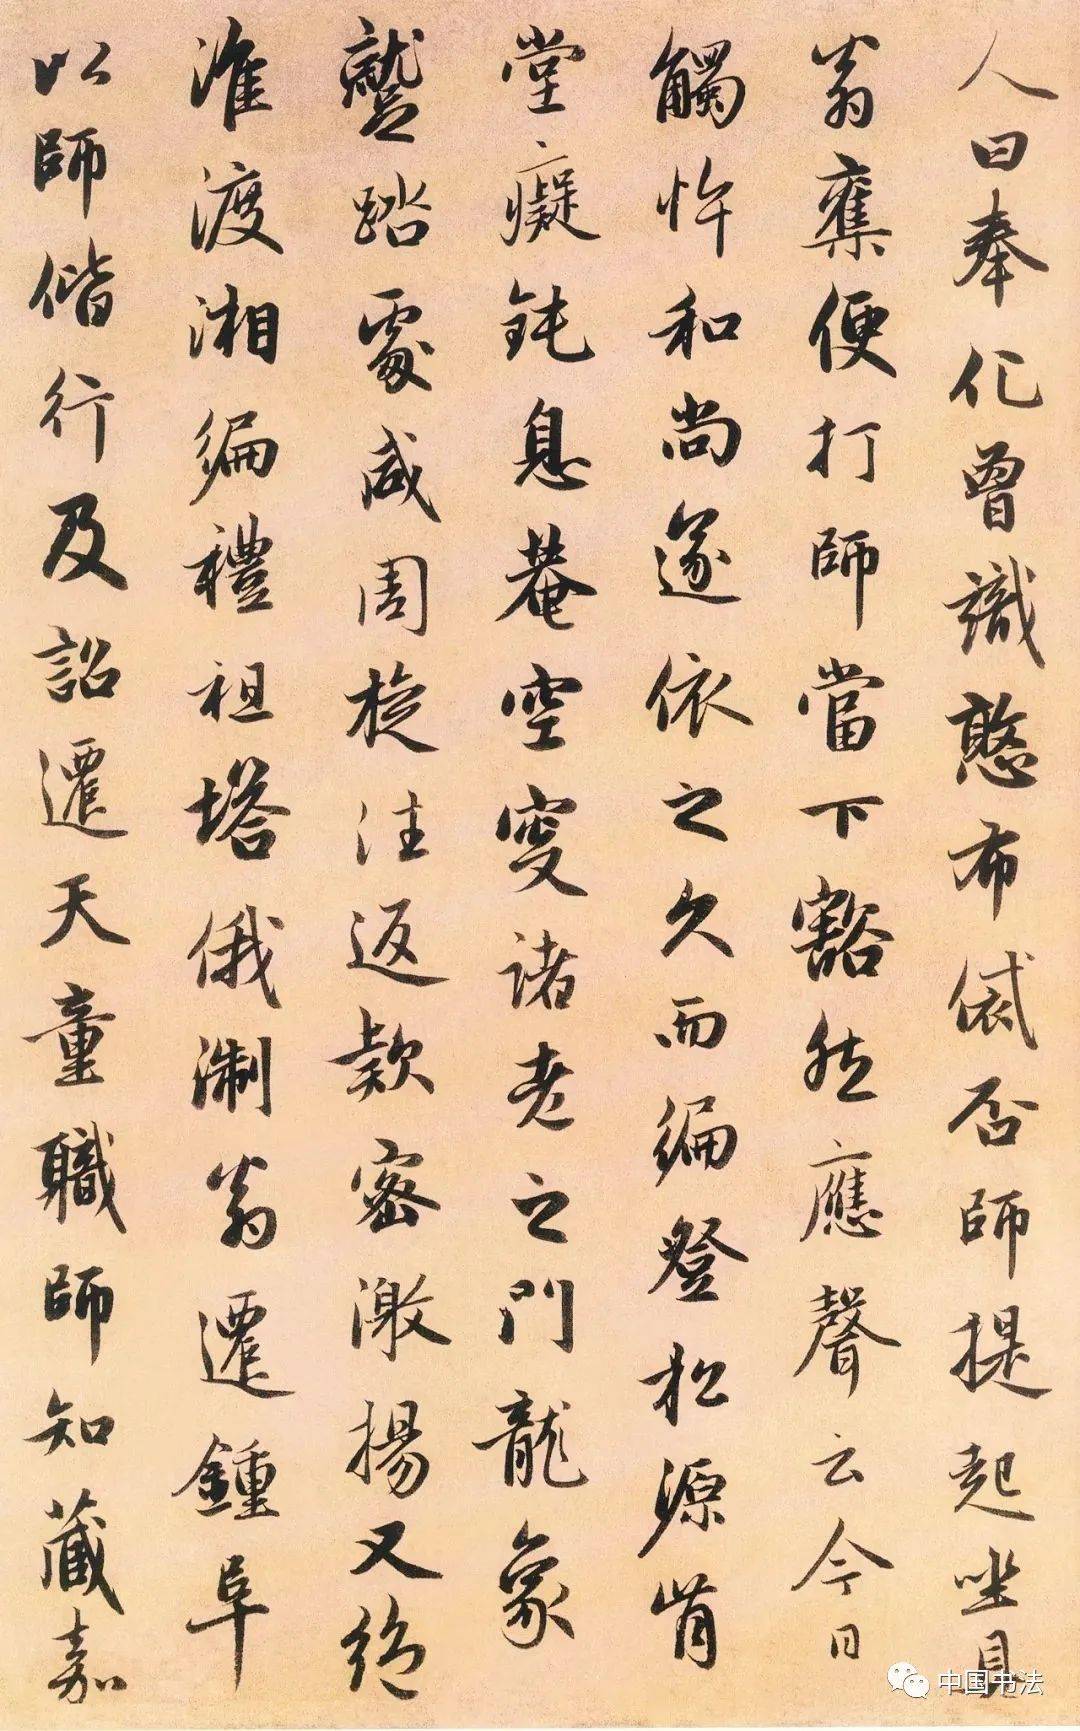 人曰奉化曾識憨布袋否師提起坐具
翁奪便打師當下豁然應聲云今日
觸忤和尚遂依之久而徧登松源肯
堂癡鈍息菴空叟諸老之門龍象
蹴踏處咸周旋往返款密激揚又絶
淮渡湘徧禮祖塔俄淛翁遷鍾阜
以師偕行及詔遷天童職師知藏嘉
中国书法